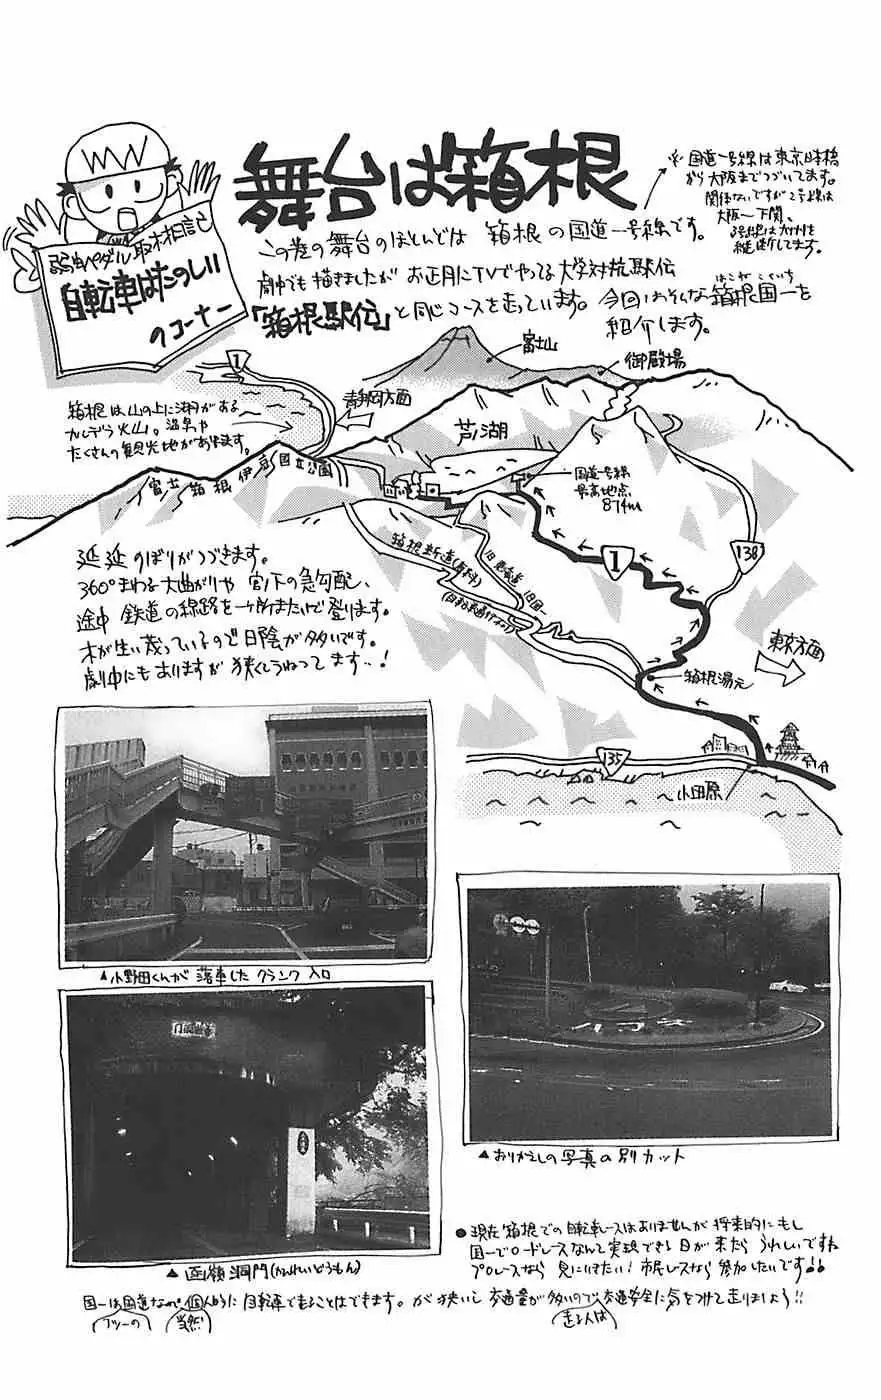 弱虫ペダル取材日記
自転車はたのしい
のコーナー
舞台は箱根
※国道一号線は東京日本橋
から大阪までつづいてます。
関係ないですが2号線は
大阪〜下関、
3号線は九州を
縦断してます。
この巻の舞台のほとんどは 箱根の国道一号線です。
劇中でも描きましたが お正月にTVでやってる大学対抗駅伝
「箱根駅伝」と同じコースを走っています。今回はそんな箱根国一を
はこねこくいち
紹介します。
富士山
御殿場
1
静岡方面
箱根は山の上に湖がある
カルデラ火山。温泉や
たくさんの観光地があります。
芦ノ湖
富士箱根伊豆国立公園
国道一号線
最高地点
874m
箱根新道(有料)
旧東海道
旧国一
1
138
東京方面
箱根湯本
135
小田原
延延のぼりがつづきます。
360°まわる大曲がりや 宮ノ下の急勾配、
途中 鉄道の線路を一ヶ所またいで登ります。
木が生い茂っているので日陰が多いです。
劇中にもありますが狭くてうねってます…!
▲小野田くんが落車したクランク入口
▲おりかえしの写真の別カット
▲函嶺洞門(かんれいどうもん)
●現在箱根での自転車レースはありませんが将来的にもし
国一でロードレースなんて実現できる日が来たら うれしいですね
プロレースなら 見に行きたい!市民レースなら 参加したいです!!
国一は国道なので個人的に自転車で走ることはできます。が狭いし交通量が多いので交通安全に気をつけて走りましょう!!
フツーの
当然
走る人は